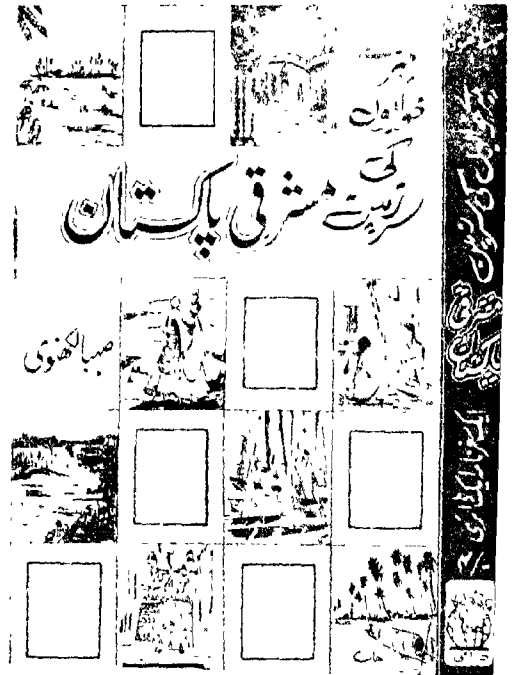 میرے
خوابوں
کی
سرزمین مشرقی پاکستان
صہبا لکھنوی
میرے خوابوں کی سرزمین
مشرقی پاکستان